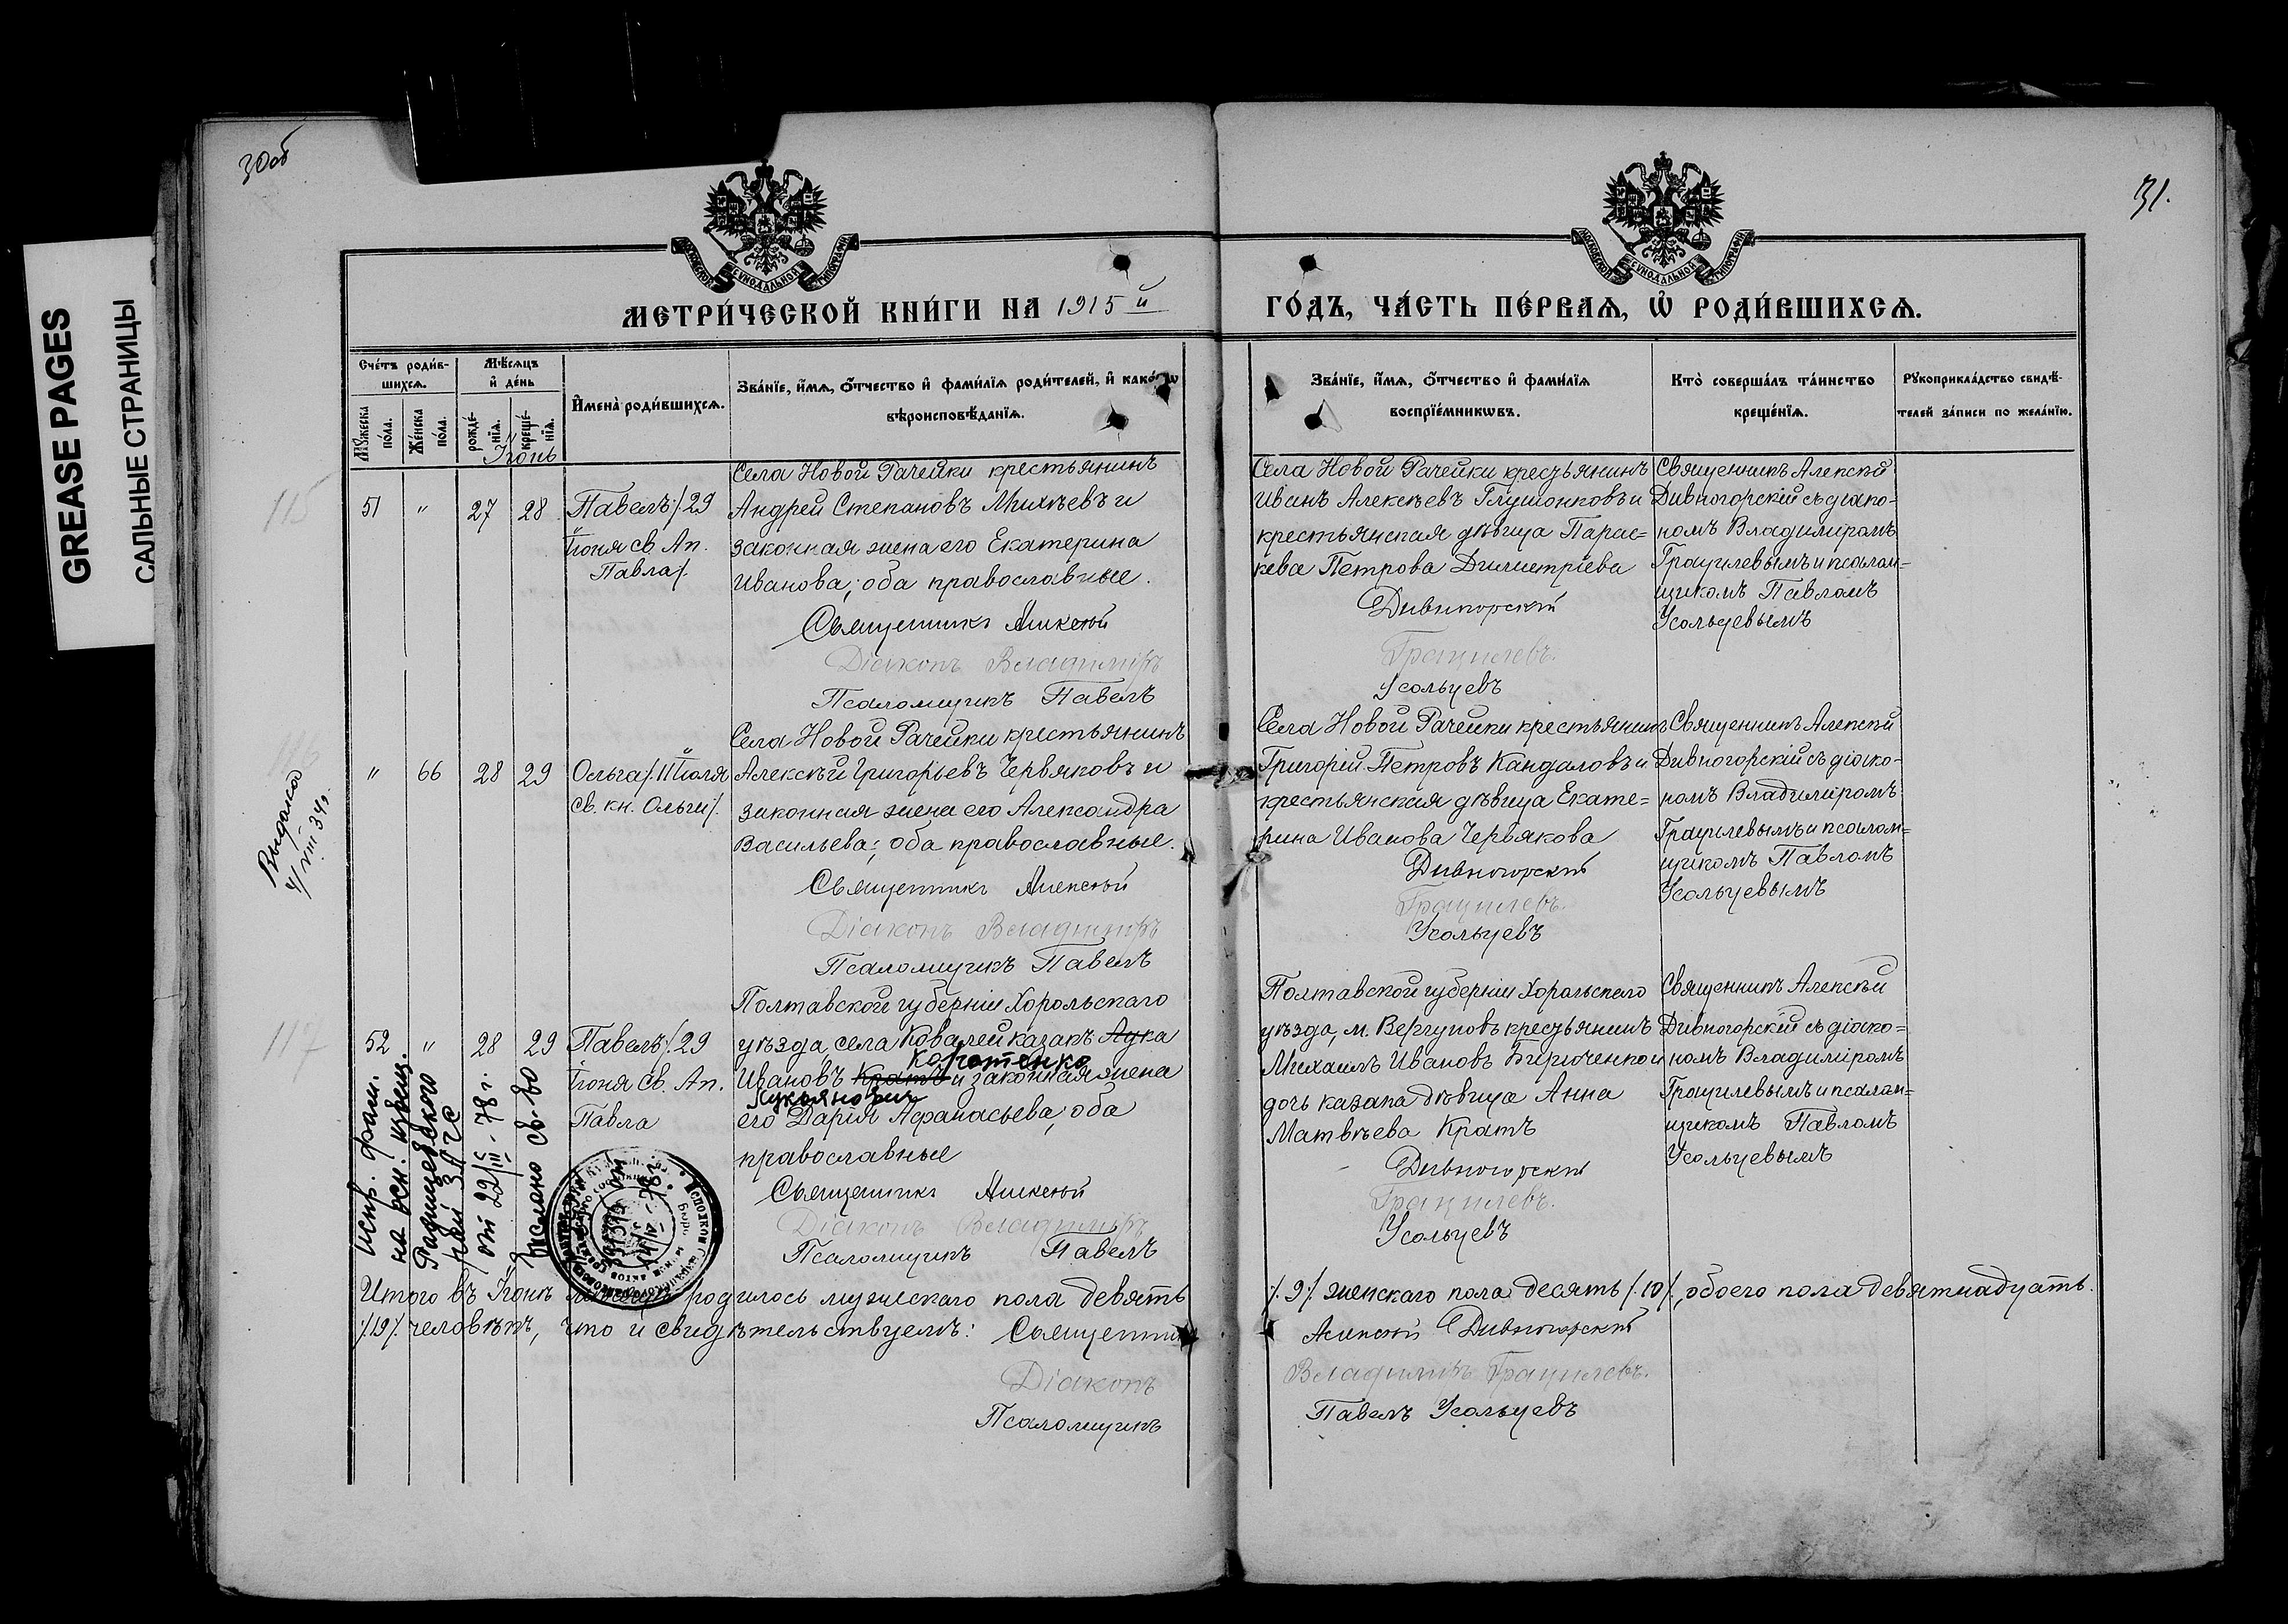 GREASE PAGES
САЛЬНЫЕ СТРАНИЦЫ
30об
31.
МЕТРИ́ЧЕСКОЙ КНИ́ГИ НА 1915й
ГО́ДЪ, ЧА́СТЬ ПЕ́РВАѦ, Ѡ҆ РОДИ́ВШИХСѦ.
Сче́тъ роди́в-
шихсѧ.
Мѣ́сѧцъ
и҆ де́нь
Мꙋ́жеска
по́ла.
Же́нска
по́ла.
рожде́-
нїѧ.
креще́-
нїѧ.
И҆мена̀ роди́вшихсѧ.
Зва́нїе, и҆́мѧ, ѻ҆́тчество и҆ фами́лїѧ роди́телей, и҆ како́гѡ
вѣроисповѣ́данїѧ.
Зва́нїе, и҆́мѧ, ѻ҆́тчество и҆ фами́лїѧ
воспрїе́мникѡвъ.
Кто̀ соверша́лъ та́инство
креще́нїѧ.
Рꙋкоприкла́дство свидѣ́-
телей за́писи по жела́нїю.
Іюнь
115
51 " 27 28
Павелъ /.29
Іюня св. Ап.
Павла/.
Села Новой Рачейки крестьянинъ
Андрей Степановъ Михѣевъ и
законная жена его Екатерина
Иванова; оба православные.
Священникъ Алексѣй
Діаконъ Владиміръ
Псаломщикъ Павелъ
Села Новой Рачейки крестьянинъ
Иванъ Алексѣевъ Глушонковъ и
крестьянская дѣвица Парас=
кева Петрова Димитріева
Дивногорскій
Грацилевъ.
Усольцевъ
Священникъ Алексѣй
Дивногорскій съ діако-
номъ Владиміромъ
Грацилевымъ и псалом-
щикомъ Павломъ
Усольцевымъ
Выдано
4/VIII 34г.
" 66 28 29
Ольга /.11 Іюля
св. кн. Ольги/.
Села Новой Рачейки крестьянинъ
Алексѣй Григорьевъ Червяковъ и
законная жена его Александра
Васильева; оба православные.
Священникъ Алексѣй
Діаконъ Владиміръ
Псаломщикъ Павелъ
Села Новой Рачейки крестьянинъ
Григорій Петровъ Кандаловъ и
крестьянская дѣвица Екате=
рина Иванова Червякова
Дивногорскій
Грацилевъ.
Усольцевъ
Священникъ Алексѣй
Дивногорскій съ діако-
номъ Владиміромъ
Грацилевымъ и псалом=
щикомъ Павломъ
Усольцевымъ
117
52 " 28 29
Павелъ /.29
Іюня св. Ап.
Павла
Полтавской губерніи Хорольскаго
уѣзда, села Ковалей казакъ Лука
Коротенко
Ивановъ Кратъ и законная жена
Лукьянович
его Дарія Афанасьева; оба
православные
Священникъ Алексѣй
Діаконъ Владиміръ
Псаломщикъ Павелъ
Полтавской губерніи Хорольскаго
уѣзда, м. Вергуновъ крестьянинъ
Михаилъ Ивановъ Бирюченко и
дочь казака дѣвица Анна
Матвѣева Кратъ
Дивногорскій
Грацилевъ.
Усольцевъ
Священникъ Алексѣй
Дивногорскій съ діако=
номъ Владиміромъ
Грацилевымъ и псалом=
щикомъ Павломъ
Усольцевымъ
испр. фам.
на осн. извещ.
Радищевского
рай ЗАГС
от 22/III-78 г.
Выслано св-во
Итого въ Іюнѣ мѣсяцѣ родилось мужескаго пола девять /.9/. женскаго пола десять /.10/., обоего пола девятнадцать.
/.19/. человѣкъ, что и свидѣтельствуемъ: Священникъ Алексѣй Дивногорскій
Діаконъ Владиміръ Грацилевъ.
Псаломщикъ Павелъ Усольцевъ